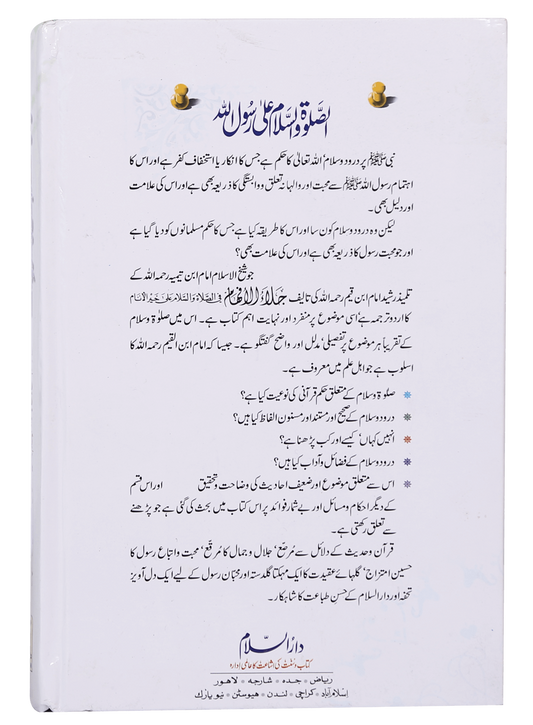 الصلوٰة والسلام علیٰ رسول اللہ
نبی ﷺ پر درود و سلام، اللہ تعالیٰ کا حکم ہے جس کا انکار یا استخفاف کفر ہے اور اس کا
اہتمام رسول اللہ ﷺ سے محبت اور والہانہ تعلق و وابستگی کا ذریعہ بھی ہے اور اس کی علامت
اور دلیل بھی۔
لیکن وہ درود و سلام کون سا اور اس کا طریقہ کیا ہے جس کا حکم مسلمانوں کو دیا گیا ہے
اور جو محبت رسول کا ذریعہ بھی ہے اور اس کی علامت بھی؟
جو شیخ الاسلام امام ابن تیمیہ رحمہ اللہ کے
تلمیذ رشید امام ابن قیم رحمہ اللہ کی تالیف جلاء الافهام في الصلاة والسلام على خير الأنام
کا اردو ترجمہ ہے، اسی موضوع پر منفرد اور نہایت اہم کتاب ہے۔ اس میں صلوٰة و سلام
کے تقریباً ہر موضوع پر تفصیلی، مدلل اور واضح گفتگو ہے۔ جیسا کہ امام ابن القیم رحمہ اللہ کا
اسلوب ہے جو اہل علم میں معروف ہے۔
صلوٰة و سلام کے متعلق حکم قرآنی کی نوعیت کیا ہے؟
درود و سلام کے صحیح اور مستند اور مسنون الفاظ کیا ہیں؟
انہیں کہاں، کیسے اور کب پڑھنا ہے؟
درود و سلام کے فضائل و آداب کیا ہیں؟
اس سے متعلق موضوع اور ضعیف احادیث کی وضاحت و تحقیق اور اس قسم
کے دیگر احکام و مسائل اور بے شمار فوائد پر اس کتاب میں بحث کی گئی ہے جو پڑھنے
سے تعلق رکھتی ہے۔
قرآن و حدیث کے دلائل سے مُرصّع، جلال و جمال کا مُرقّع، محبت و اتباع رسول کا
حسین امتزاج، گلہائے عقیدت کا ایک مہکتا گلدستہ اور محبّان رسول کے لیے ایک دل آویز
تحفہ اور دارالسلام کے حسن طباعت کا شاہکار۔
دارالسلام
کتاب و سنت کی اشاعت کا عالمی ادارہ
ریاض • جدہ • شارجہ • لاہور
اسلام آباد • کراچی • لندن • ہیوسٹن • نیو یارک